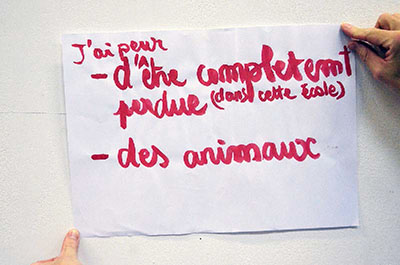 J'ai peur
- d'être completemt
perdue (dans cette École)
- des animaux